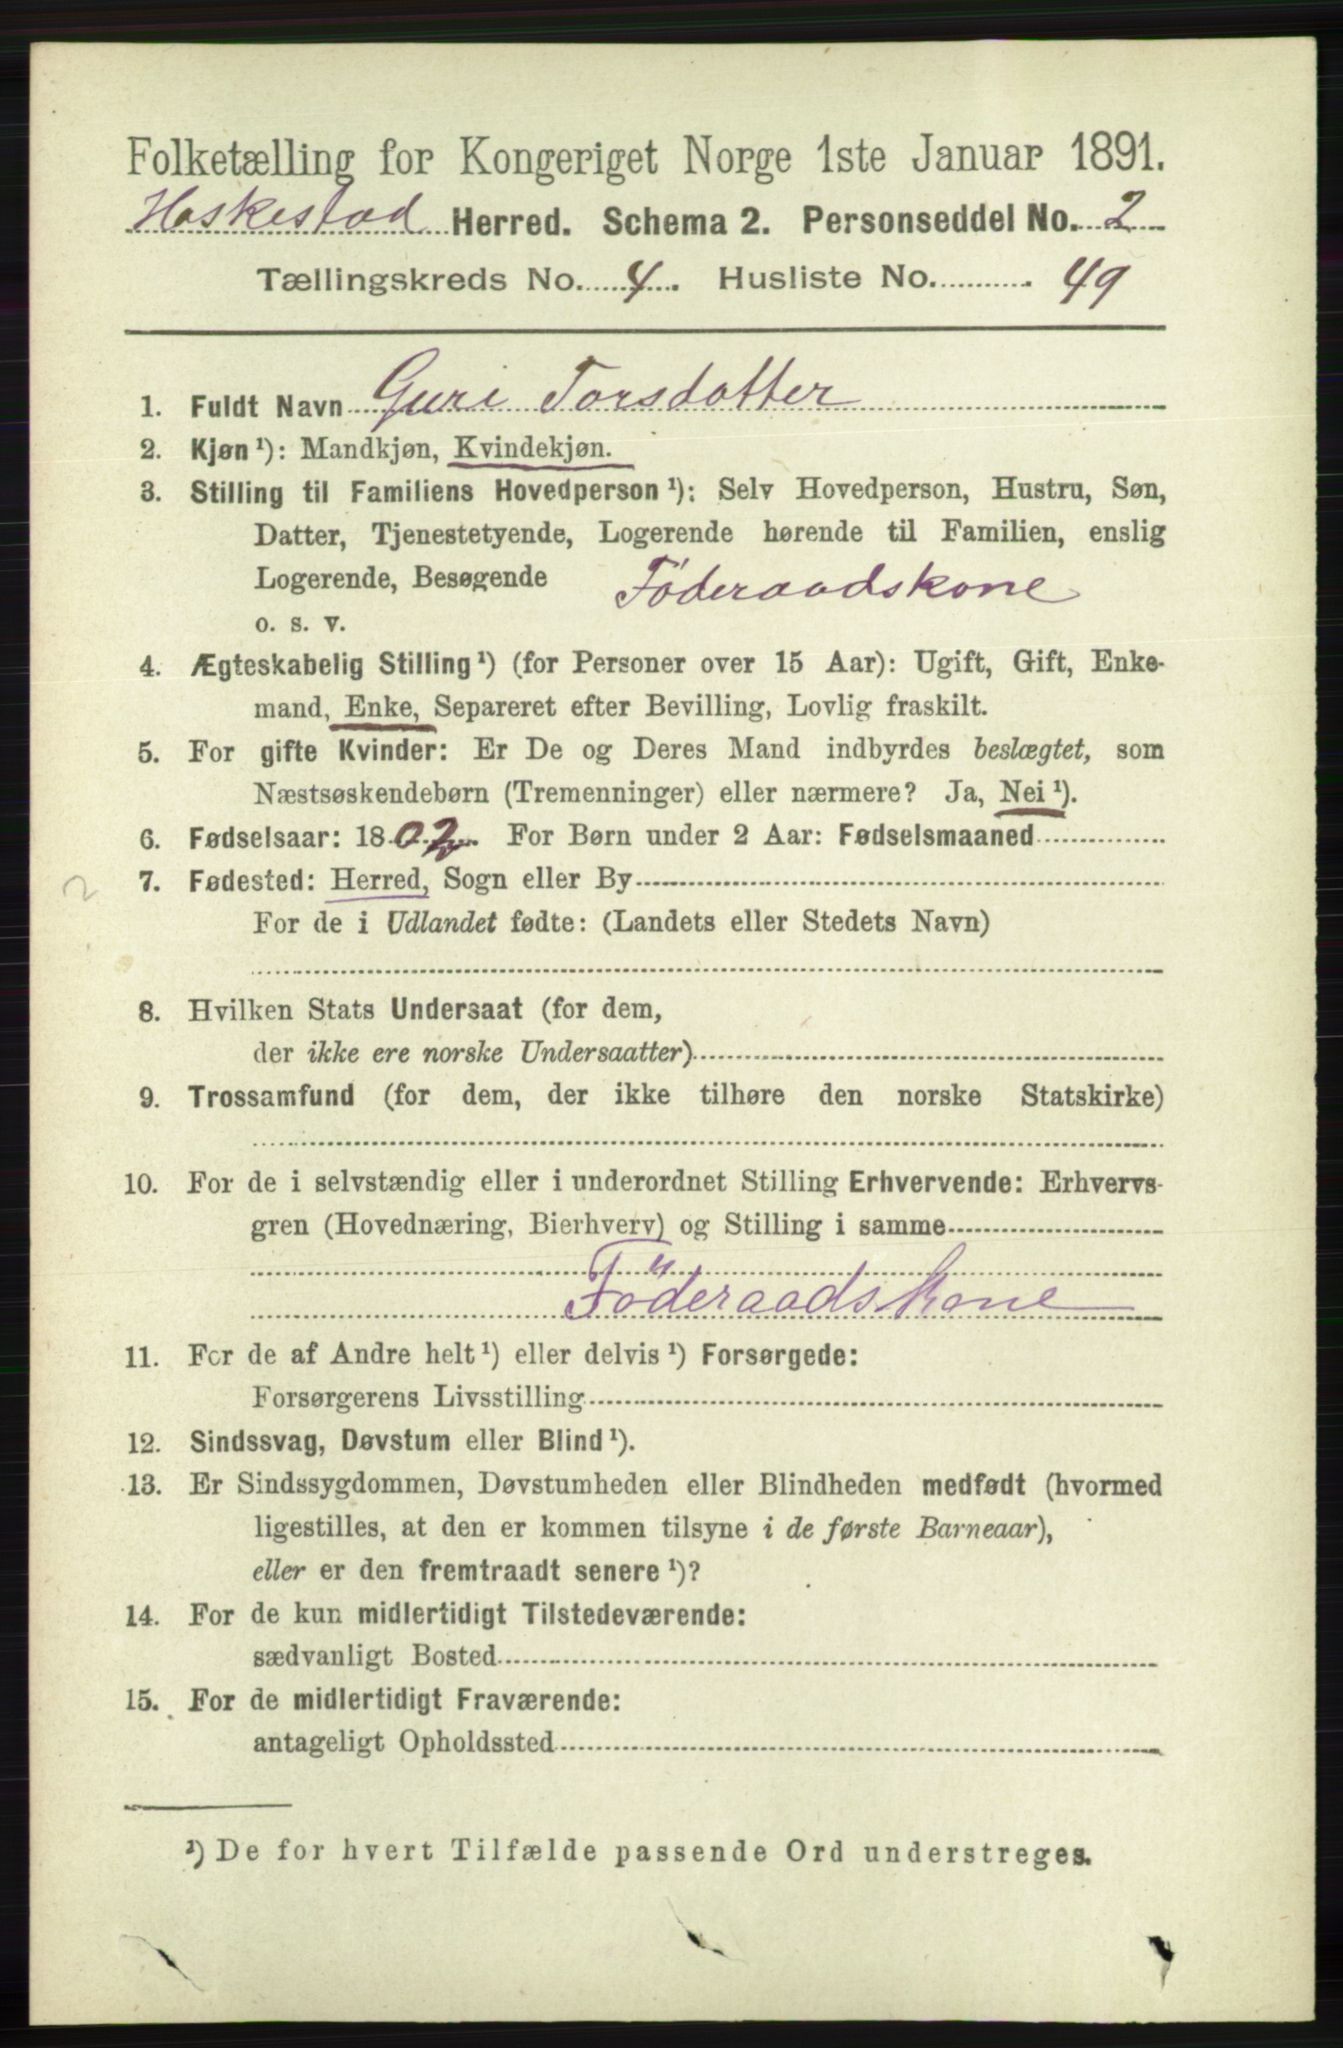 Folketælling for Kongeriget Norge 1ste Januar 1891.
Heskestad Herred. Schema 2. Personseddel No. 2
Tællingskreds No. 4. Husliste No. 49
1. Fuldt Navn Guri Torsdatter
2. Kjøn ¹): Mandkjøn, Kvindekjøn.
3. Stilling til Familiens Hovedperson ¹): Selv Hovedperson, Hustru, Søn,
Datter, Tjenestetyende, Logerende hørende til Familien, enslig
Logerende, Besøgende Föderaadskone
o. s. v.
4. Ægteskabelig Stilling ¹) (for Personer over 15 Aar): Ugift, Gift, Enke-
mand, Enke, Separeret efter Bevilling, Lovlig fraskilt.
5. For gifte Kvinder: Er De og Deres Mand indbyrdes beslægtet, som
Næstsøskendebørn (Tremenninger) eller nærmere? Ja, Nei ¹).
6. Fødselsaar: 1802. For Børn under 2 Aar: Fødselsmaaned
2 7. Fødested: Herred, Sogn eller By
For de i Udlandet fødte: (Landets eller Stedets Navn)
8. Hvilken Stats Undersaat (for dem,
der ikke ere norske Undersaatter)
9. Trossamfund (for dem, der ikke tilhøre den norske Statskirke)
10. For de i selvstændig eller i underordnet Stilling Erhvervende: Erhvervs-
gren (Hovednæring, Bierhverv) og Stilling i samme
Föderaadskone
11. For de af Andre helt ¹) eller delvis ¹) Forsørgede:
Forsørgerens Livsstilling
12. Sindssvag, Døvstum eller Blind ¹).
13. Er Sindssygdommen, Døvstumheden eller Blindheden medfødt (hvormed
ligestilles, at den er kommen tilsyne i de første Barneaar),
eller er den fremtraadt senere ¹)?
14. For de kun midlertidigt Tilstedeværende:
sædvanligt Bosted
15. For de midlertidigt Fraværende:
antageligt Opholdssted
¹) De for hvert Tilfælde passende Ord understreges.